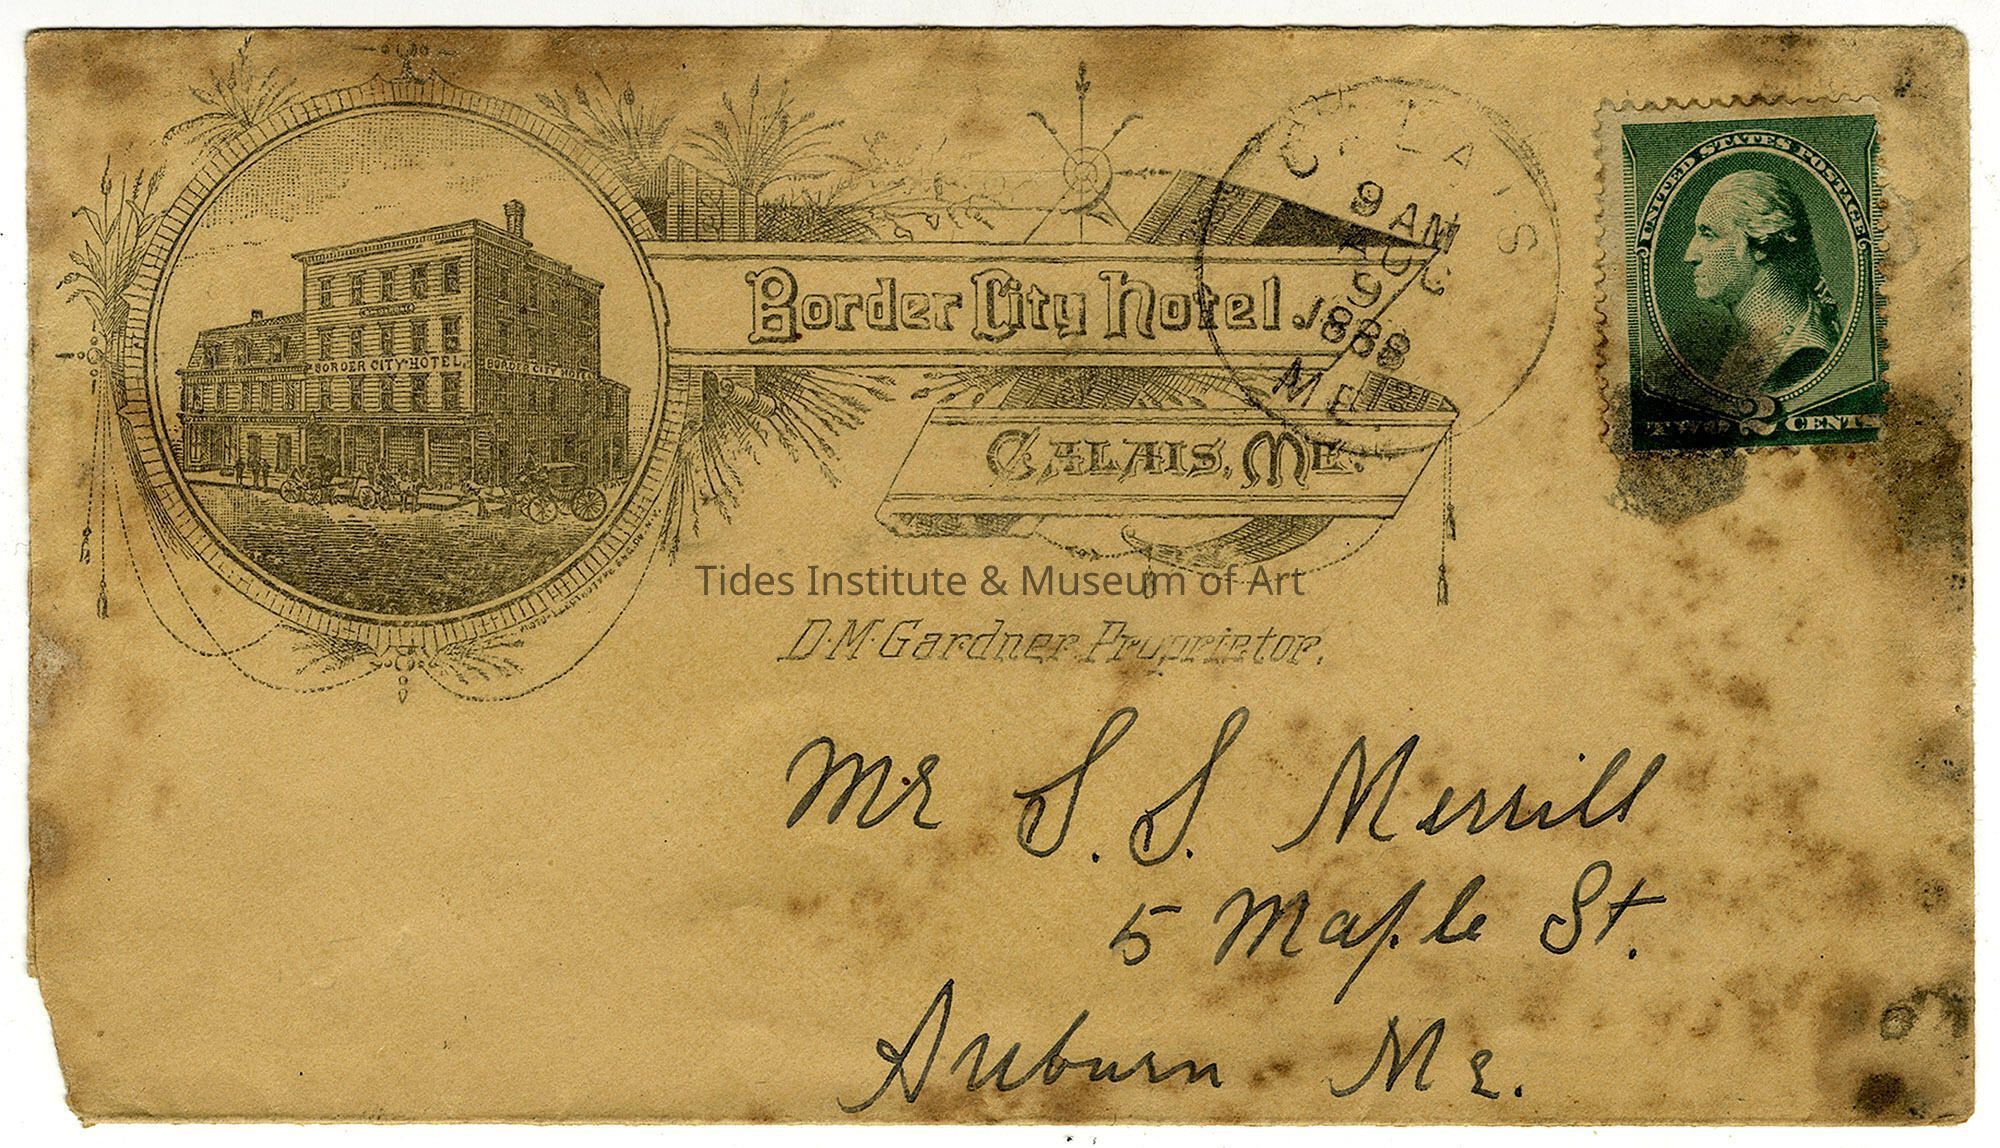 BORDER CITY HOTEL.
BORDER CITY HOTEL
Border City Hotel.
CALAIS, ME.
D. M. Gardner Proprietor.
CALAIS
9 AM
AUG
9
1888
ME
UNITED STATES POSTAGE
TWO 2 CENTS
Tides Institute & Museum of Art
Mr S. S. Merrill
5 Maple St.
Auburn Me.